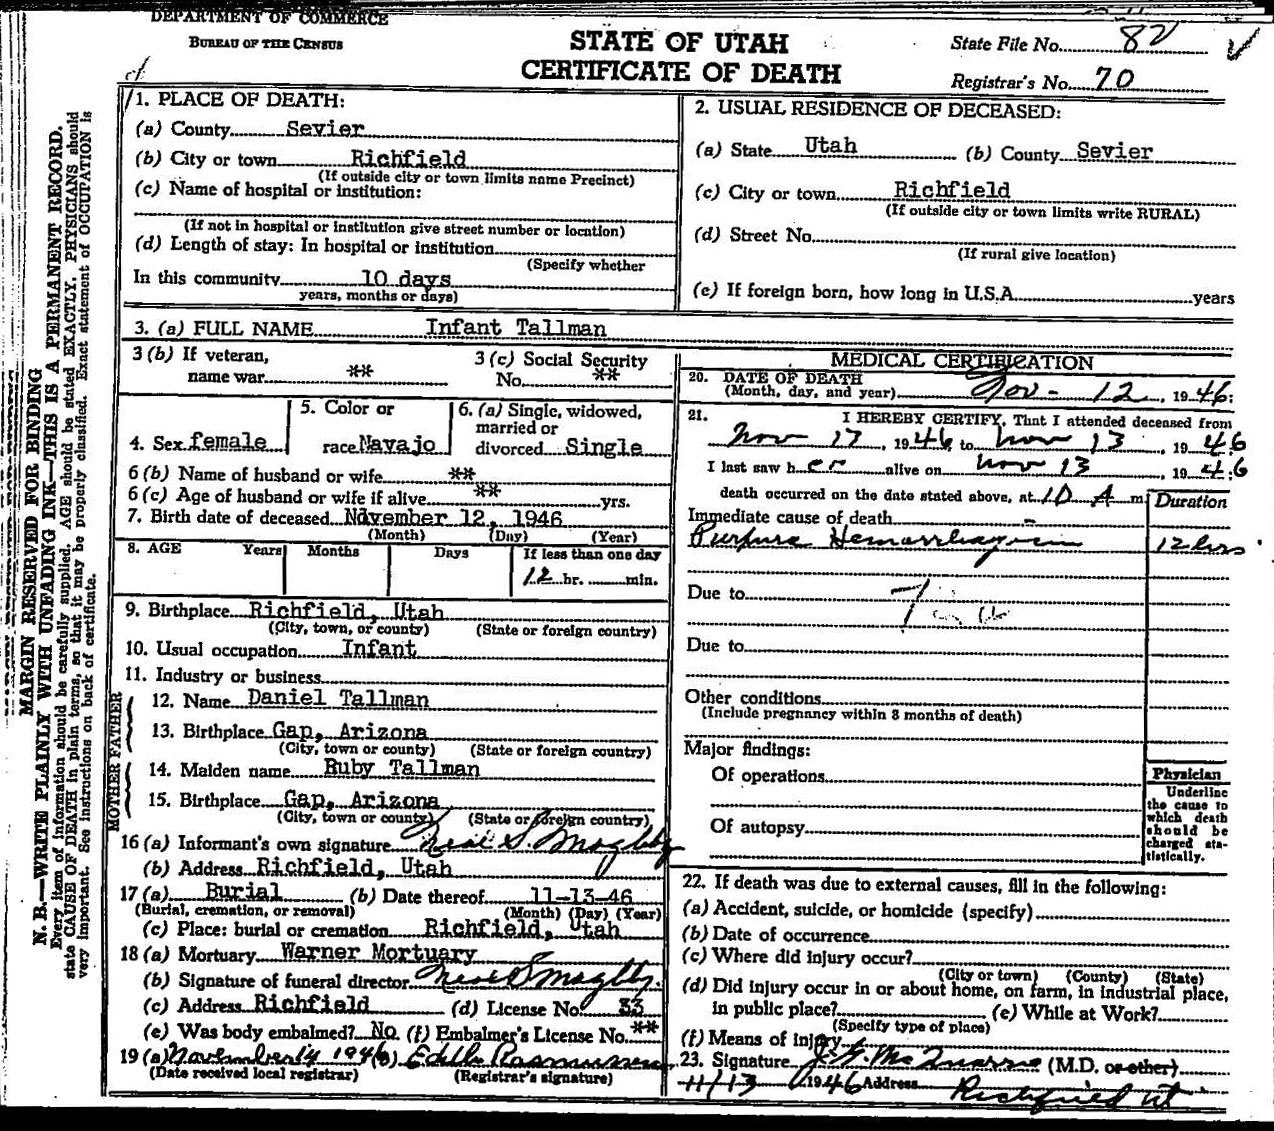 DEPARTMENT OF COMMERCE
BUREAU OF THE CENSUS
STATE OF UTAH
CERTIFICATE OF DEATH
State File No. 82
Registrar's No. 70
MARGIN RESERVED FOR BINDING
N. B.—WRITE PLAINLY WITH UNFADING INK—THIS IS A PERMANENT RECORD.
Every item of information should be carefully supplied. AGE should be stated EXACTLY. PHYSICIANS should
state CAUSE OF DEATH in plain terms, so that it may be properly classified. Exact statement of OCCUPATION is
very important. See instructions on back of certificate.
1. PLACE OF DEATH:
(a) County Sevier
(b) City or town Richfield
(If outside city or town limits name Precinct)
(c) Name of hospital or institution:
(If not in hospital or institution give street number or location)
(d) Length of stay: In hospital or institution
(Specify whether
In this community 10 days
years, months or days)
2. USUAL RESIDENCE OF DECEASED:
(a) State Utah (b) County Sevier
(c) City or town Richfield
(If outside city or town limits write RURAL)
(d) Street No.
(If rural give location)
(e) If foreign born, how long in U.S.A. years
3. (a) FULL NAME Infant Tallman
3 (b) If veteran,
name war **
3 (c) Social Security
No. **
4. Sex female
5. Color or
race Navajo
6. (a) Single, widowed,
married or
divorced Single
6 (b) Name of husband or wife **
6 (c) Age of husband or wife if alive ** yrs.
7. Birth date of deceased November 12, 1946
(Month) (Day) (Year)
8. AGE Years Months Days If less than one day
12 hr. min.
9. Birthplace Richfield, Utah
(City, town, or county) (State or foreign country)
10. Usual occupation Infant
11. Industry or business
FATHER
12. Name Daniel Tallman
13. Birthplace Gap, Arizona
(City, town or county) (State or foreign country)
MOTHER
14. Maiden name Ruby Tallman
15. Birthplace Gap, Arizona
(City, town or county) (State or foreign country)
16 (a) Informant's own signature Neal S. Magleby
(b) Address Richfield, Utah
17 (a) Burial (b) Date thereof 11-13-46
(Burial, cremation, or removal) (Month) (Day) (Year)
(c) Place: burial or cremation Richfield, Utah
18 (a) Mortuary Warner Mortuary
(b) Signature of funeral director Neal S Magleby.
(c) Address Richfield (d) License No. 33
(e) Was body embalmed? No (f) Embalmer's License No. **
19 (a) November 14 1946 (b) Rasmussen
(Date received local registrar) (Registrar's signature)
MEDICAL CERTIFICATION
20. DATE OF DEATH
(Month, day, and year) Nov - 12, 1946;
21. I HEREBY CERTIFY, That I attended deceased from
Nov 17, 1946 to Nov 13, 1946
I last saw her alive on Nov 13, 1946;
death occurred on the date stated above, at 10 A m
Duration
Immediate cause of death
Purpura Hemorrhagica 12 hrs
Due to
Due to
Other conditions
(Include pregnancy within 3 months of death)
Major findings:
Of operations
Of autopsy
Physician
Underline
the cause to
which death
should be
charged sta-
tistically.
22. If death was due to external causes, fill in the following:
(a) Accident, suicide, or homicide (specify)
(b) Date of occurrence
(c) Where did injury occur?
(City or town) (County) (State)
(d) Did injury occur in or about home, on farm, in industrial place,
in public place? (e) While at Work?
(Specify type of place)
(f) Means of injury
23. Signature J. G. McQuarrie (M.D. or other)
11/13 1946 Address Richfield Ut